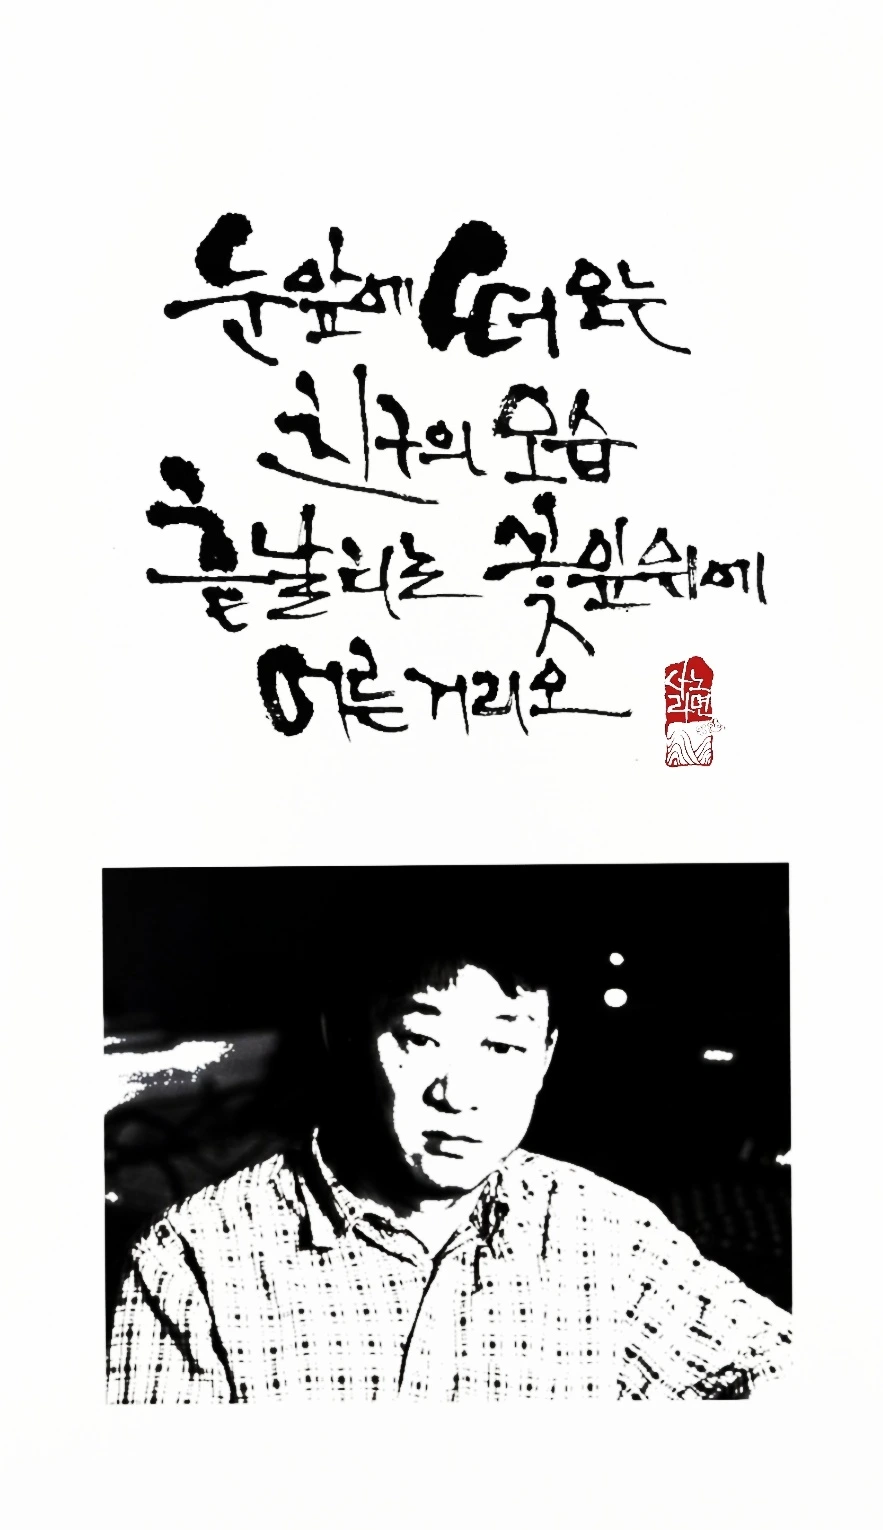 눈앞에 떠오는
친구의 모습
흩날리는 꽃잎위에
어른거리오